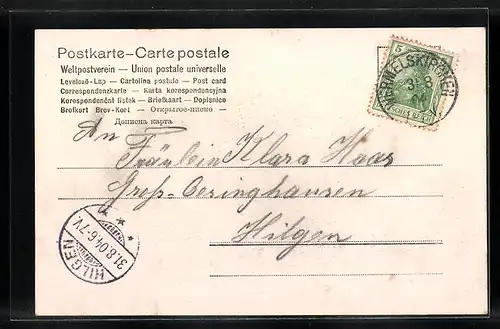 Postkarte – Carte postale
Weltpostverein — Union postale universelle
Levelező-Lap — Cartolina postale — Post card
Correspondenzkarte — Karta korespondencyjna
Korespondenční lístek — Briefkaart — Dopisnice
Brefkort Brev-Kort — Открытое письмо —
Дописна карта
5
WERMELSKIRCHEN
31 8
DEUTSCHES REICH
An
Fräulein Klara Haas
Groß-Oesinghausen
Hilgen
HILGEN
31.8.04.6-7V.
* * *